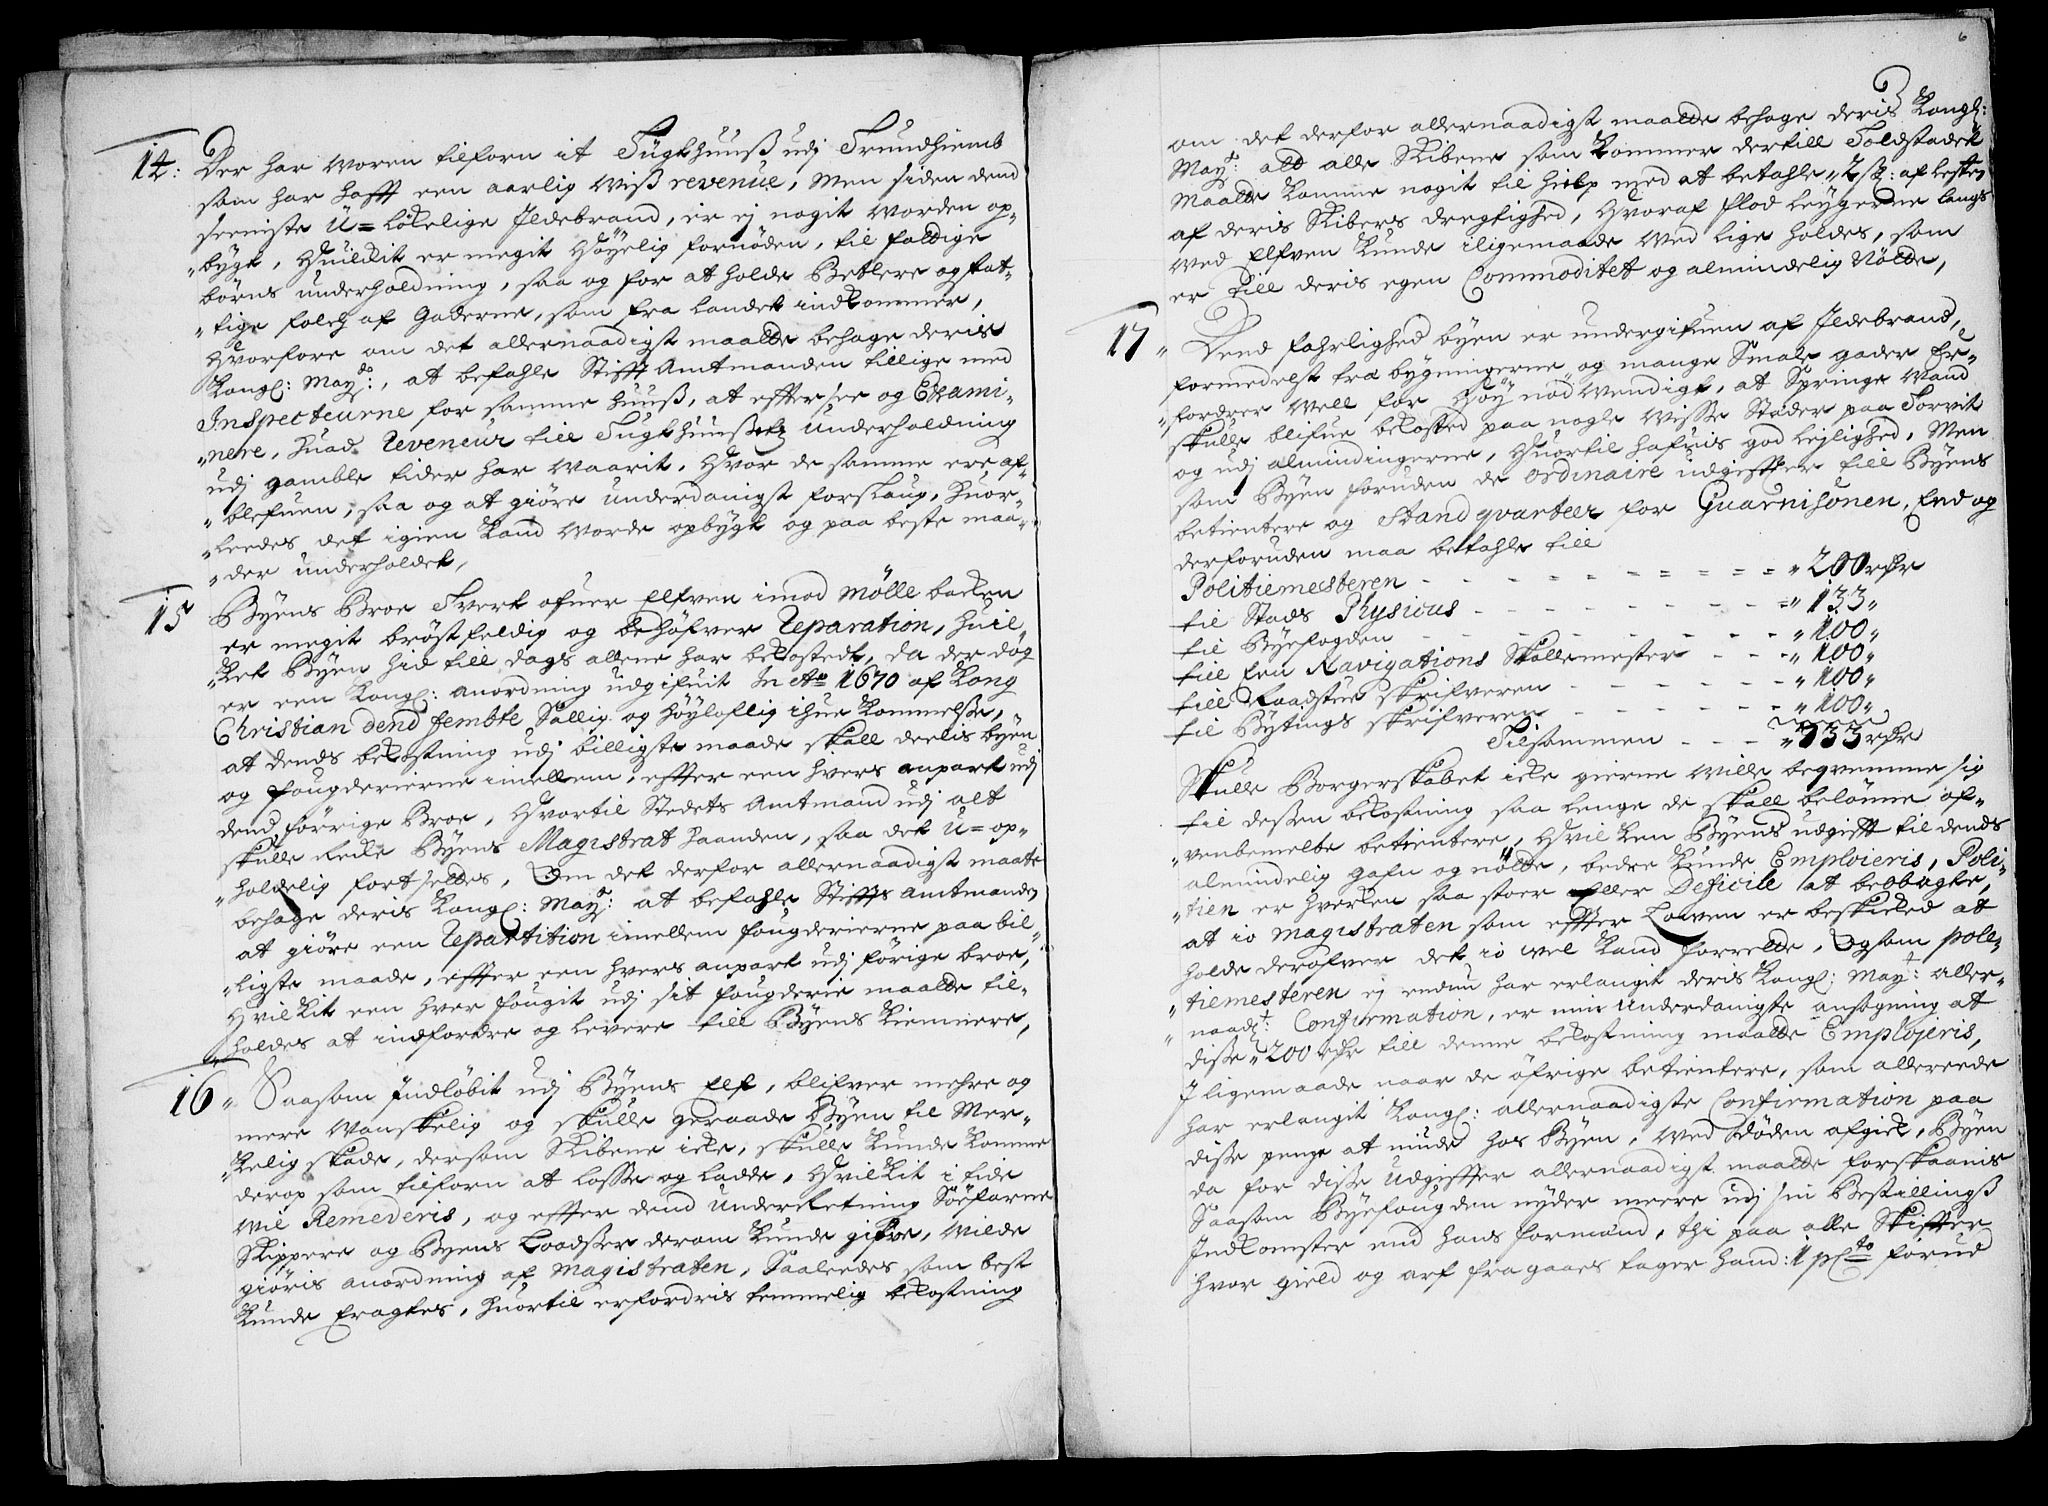 14: Der har voren tilforn it Tugthuuß udj Trundhiemb
som har hafft een aarlig wiß revenue, Men siden dend
seeniste U=lökelige Ildebrand, er ej nogit worden op-
"bÿgt, Huilkit er megit Höÿelig fornöden, til fattige
börns underholdning, saa og for at holde Betlere og fat-
"tige folch af Gaderne, som fra landet indkommer,
Hvorfore om det allernaadigst maatte behage deris
Kongl: Maÿ:, at befahle Stifft Amtmanden tillige med
Inspecteurne for samme Huuß, at efftersee og Exami-
"nere, huad Reveneur till Tugthuußetz underholdning
udj gamble tider har waarit, Hvor de samme ere af-
"blefuen, saa og at giöre underdanigst forslaug, huor-
"leedes det igien kand worde opbÿgt og paa beste maa-
"der underholdet,
15 Bÿens Broe Tvert ofuer Elfven imod Mölle bachen
er megit bröstfeldig og behöfver Reparation, huil-
"ket Bÿen hid till dags allene har bekostedt, da der dog
er een Kongl: anordning udgifuit In Ao 1670 af Kong
Christian dend fembte Sallig og höÿloflig ihue kommelse,
at dends bekostning udj billigste maade skall deelis bÿen
og fougderierne imellem, effter een hvers anpart udj
dend förrige Broe, Hvortil Stedets Amtmand udj alt
skulle recke Bÿens Magistrat haanden, saa det U=op-
"holdelig fortsettes, Om det derfor allernaadigst maate
behage deris Kongl: Maÿt: at befahle Stiffts amtmanden
at giöre een Repartition imellem fougderierne paa bil-
"ligste maade, effter een hvers anpart udj förige broe,
Hvilkit een hver fougit udj sit fougderie maatte til-
"holdes at indfordre og levere till Bÿens Kiemnere,
16 " Saasom Indlöbit udj Bÿens Elf, blifver mehre og
mere vanskelig og skulle geraade Bÿen til Mer-
"kelig skade, dersom Skibene icke, skulle kunde komme
derop som tilforn at losse og ladde, Hvilkit i tide
vil Remederis, og effter dend underretning Söefarne
Skippere og Bÿens Loodser derom kunde gifve, vilde
giöris anordning af Magistraten, Saaleedes som best
kunde Eragtes, huortil erfordris temmelig bekostning
6
om det derfor allernaadigst maatte behage deris Kongl:
Maÿt: att alle Skibene som kommer dertill Toldstadet
Maatte komme nogit til hielp med at betahle " 2 sk: af lesten
af deris Skibers dregtighed, Hvoraf flod leÿgerne langs
ved Elfven kunde iligemaade ved lige holdes, som
er till deris egen Commoditet og almindelig Nötte,
17 " Dend fahrlighed bÿen er undergifuen af Ildebrand,
formedelst træ bÿgningerne og mange Smale gader Er-
"fordrer vell for Höÿ nodvendigt, at Springe vand
skulle blifue bekosted paa nogle visse Stæder paa Torvit
og udj almindingerne, Huortil hafuis god lejlighed, Men
som Bÿen foruden de ordinaire udgiffter till Bÿens
betientere og Standqvarteer for Guarnisonen, End og
derforuden maa betahle till
Politiemesteren - - - - - - - - " 200 rdr
til Stads Physicus - - - - - - - " 133 "
til Bÿefogden - - - - - - - - " 100 "
till een Navigations Skollemester - - - " 100 "
till Raadstue skrifveren - - - - - " 100 "
til Bÿtings skrifveren - - - - - " 100 "
Tilsammen - - - " 733 rdr
Skulle Borgerskabet icke gierne ville beqvemme sig
til dessen bekostning saa lenge de skall belönne of-
"venbemelte betientere, Hvilken Bÿens udgifft til dends
almindelig gafn og nötte, bedre kunde Emploieris, Poli-
"tien er hverken saa stoer Eller Deficile at beobagte,
at io Magistraten som effter Lowen er beskicked at
holde derofver det io vel kand forrette, Og som poli-
"tiemesteren ej endnu har erlangit deris Kongl: Maÿt: aller-
"naadt: Confirmation, er min underdanigste ansögning at
disse " 200 rdr till denne bekostning maatte Emploieris,
Iligemaade naar de öfrige betientere, som allereede
har erlangit Kongl: allernaadigste Confirmation paa
disse penge at niude hos Bÿen, ved Döden afgick, Bÿen
da for disse udgiffter allernaadigst maatte forskaanis
Saasom Bÿefougden nÿder meere udj sin Bestillingß
Indkomster end hans formænd, thi paa alle Skiffter
hvor gield og arf fragaaes tager hand: 1 pCto forud